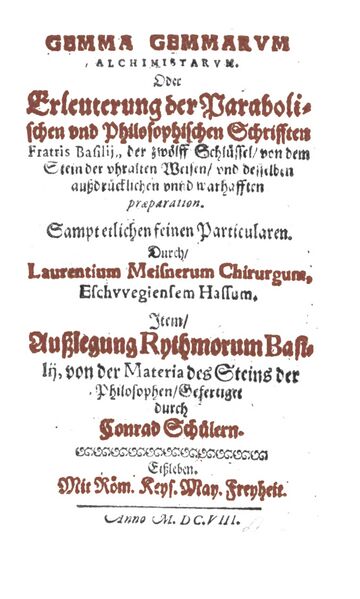 GEMMA GEMMARVM
ALCHIMISTARVM.
Oder
Erleuterung der Paraboli-
schen vnd Philosophischen Schrifften
Fratris Basilij, der zwölff Schlüssel/ von dem
Stein der vhralten Weisen/ vnd desselben
außdrücklichen vnnd warhafften
præparation.
Sampt etlichen feinen Particularen.
Durch/
Laurentium Meisnerum Chirurgum,
Eschvvegiensem Hassum.
Item/
Außlegung Rythmorum Basi-
lij, von der Materia des Steins der
Philosophen/ Gefertiget
durch
Conrad Schülern.
Eißleben.
Mit Röm. Keys. May. Freyheit.
Anno M. DC. VIII.